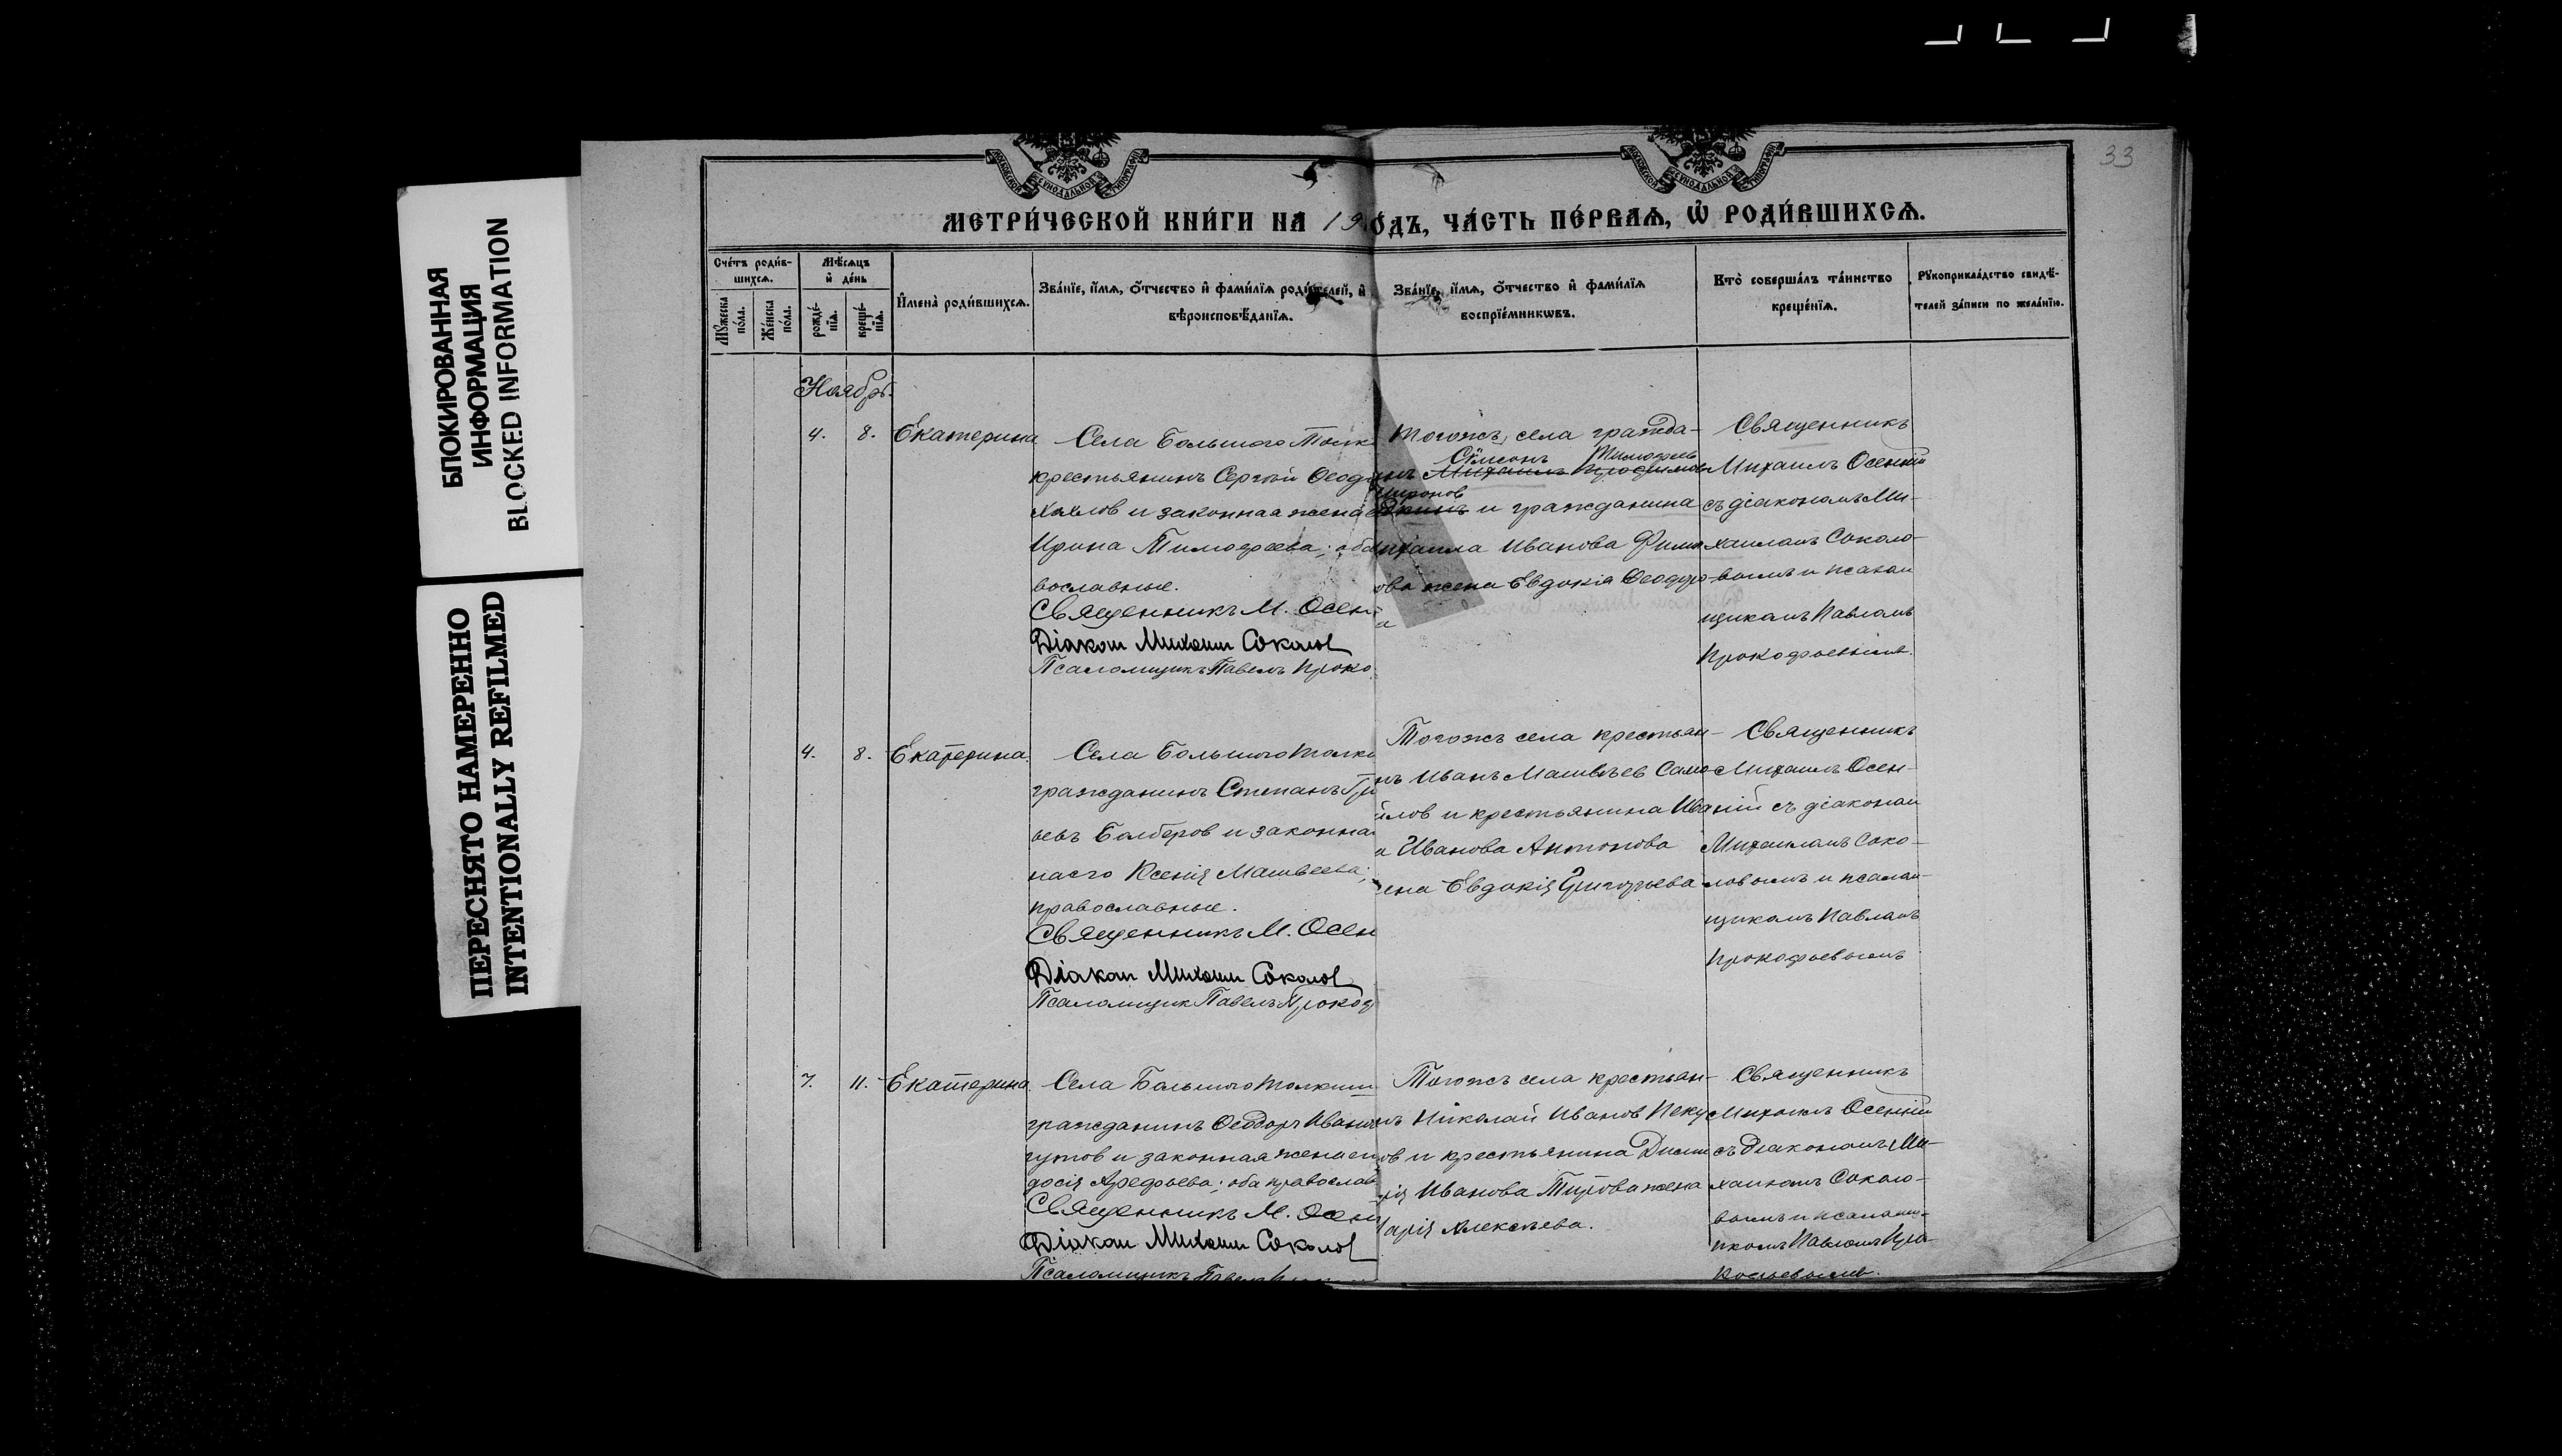 БЛОКИРОВАННАЯ
ИНФОРМАЦИЯ
BLOCKED INFORMATION
ПЕРЕСНЯТО НАМЕРЕННО
INTENTIONALLY REFILMED
33
МОСКОВСКОЙ СѴНОДАЛЬНОЙ ТИПОГРАФІИ
МОСКОВСКОЙ СѴНОДАЛЬНОЙ ТИПОГРАФІИ
МЕТРИ́ЧЕСКОЙ КНИ́ГИ НА 19 О́ДЪ, ЧА́СТЬ ПЕ́РВАѦ, Ѡ҆ РОДИ́ВШИХСѦ.
Сче́тъ роди́в-
шихсѧ.
Мꙋ́жеска по́ла.
Же́нска по́ла.
Мѣ́сѧцъ
и҆ де́нь
рожде́-
нїѧ.
креще́-
нїѧ.
И҆мена̀ роди́вшихсѧ.
Зва́нїе, и҆́мѧ, ѻ҆́тчество и҆ фами́лїѧ роди́телей, и҆
вѣроисповѣ́данїѧ.
Зва́нїе, и҆́мѧ, ѻ҆́тчество и҆ фами́лїѧ
воспрїе́мникѡвъ.
Кто̀ соверша́лъ та́инство
креще́нїѧ.
Рꙋкоприкла́дство свидѣ́-
телей за́писи по жела́нїю.
Ноябрь.
4. 8. Екатерина
Села Большого Толк
крестьянинъ Сергѣй Ѳеод
и законная жена
Ирина Тимофеева; оба
вославные.
Священникъ М. Осен
Діакон Михаил Соколов
Псаломщикъ Павелъ Проко
Тогожъ села гражда-
Сѵмеонъ Тимофеев
нъ Михаилъ
Миронов
и гражданина
ихаила Иванова
ова жена Евдокія Ѳеодоро-
а
Священникъ
Михаилъ Осенній
съ діакономъ Ми-
хаиломъ Соколо-
вымъ и псалом
щикомъ Павломъ
Прокофьевымъ.
4. 8. Екатерина.
Села Большого Толки
гражданинъ Степанъ Гри
ьевъ Балберов и законна
наего Ксенія Матвеева;
православные.
Священникъ М. Осен
Діакон Михаил Соколов
Псаломщик Павелъ Прокоф
Тогожъ села крестьян-
нъ Иванъ Матвѣев Само-
йлов и крестьянина Ива
а Иванова Антонова
ена Евдокія Григорьева
Священникъ
Михаилъ Осен-
ній съ діаконом
Михаиломъ Соко-
ловымъ и псалом-
щикомъ Павломъ
Прокофьевымъ
7. 11. Екатерина.
Села Большого Толкиш
гражданинъ Ѳеодоръ Иванов
гутов и законная жена ег
досія Арефьева; оба православ
Священникъ М. Осен
Діакон Михаил Соколов
Псаломщикъ Павелъ
Тогожъ села крестьян-
нъ Николай Иванов Пеку
ов и крестьянина Дими
рія Иванова Титова жена
Марія Алексѣева.
Священникъ
Михаилъ Осенній
съ діакономъ Ми-
хаиломъ Соколо-
вымъ и псаломщи-
комъ Павломъ Про-
кофьевымъ.